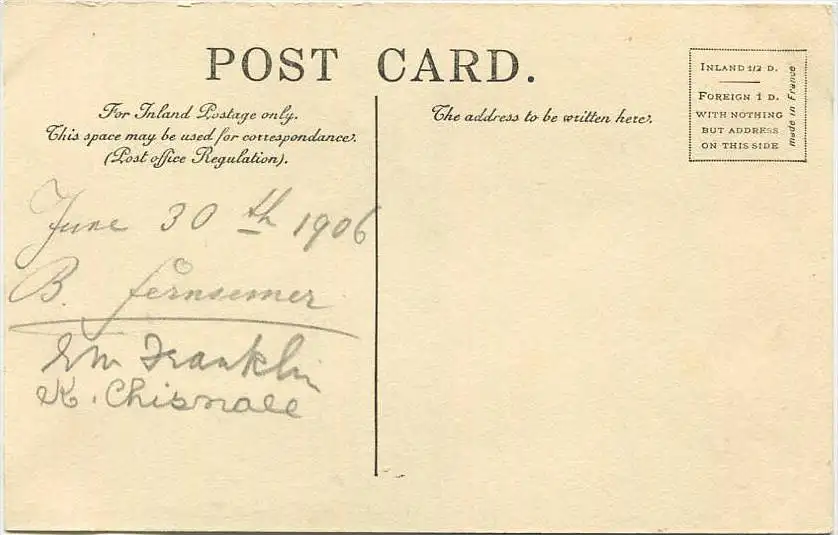 POST CARD.
For Inland Postage only.
This space may be used for correspondance.
(Post office Regulation).
The address to be written here.
INLAND 1/2 D.
FOREIGN 1 D.
WITH NOTHING
BUT ADDRESS
ON THIS SIDE
made in France
June 30th 1906
B. Fernsemer
Franklin
K. Chisnall